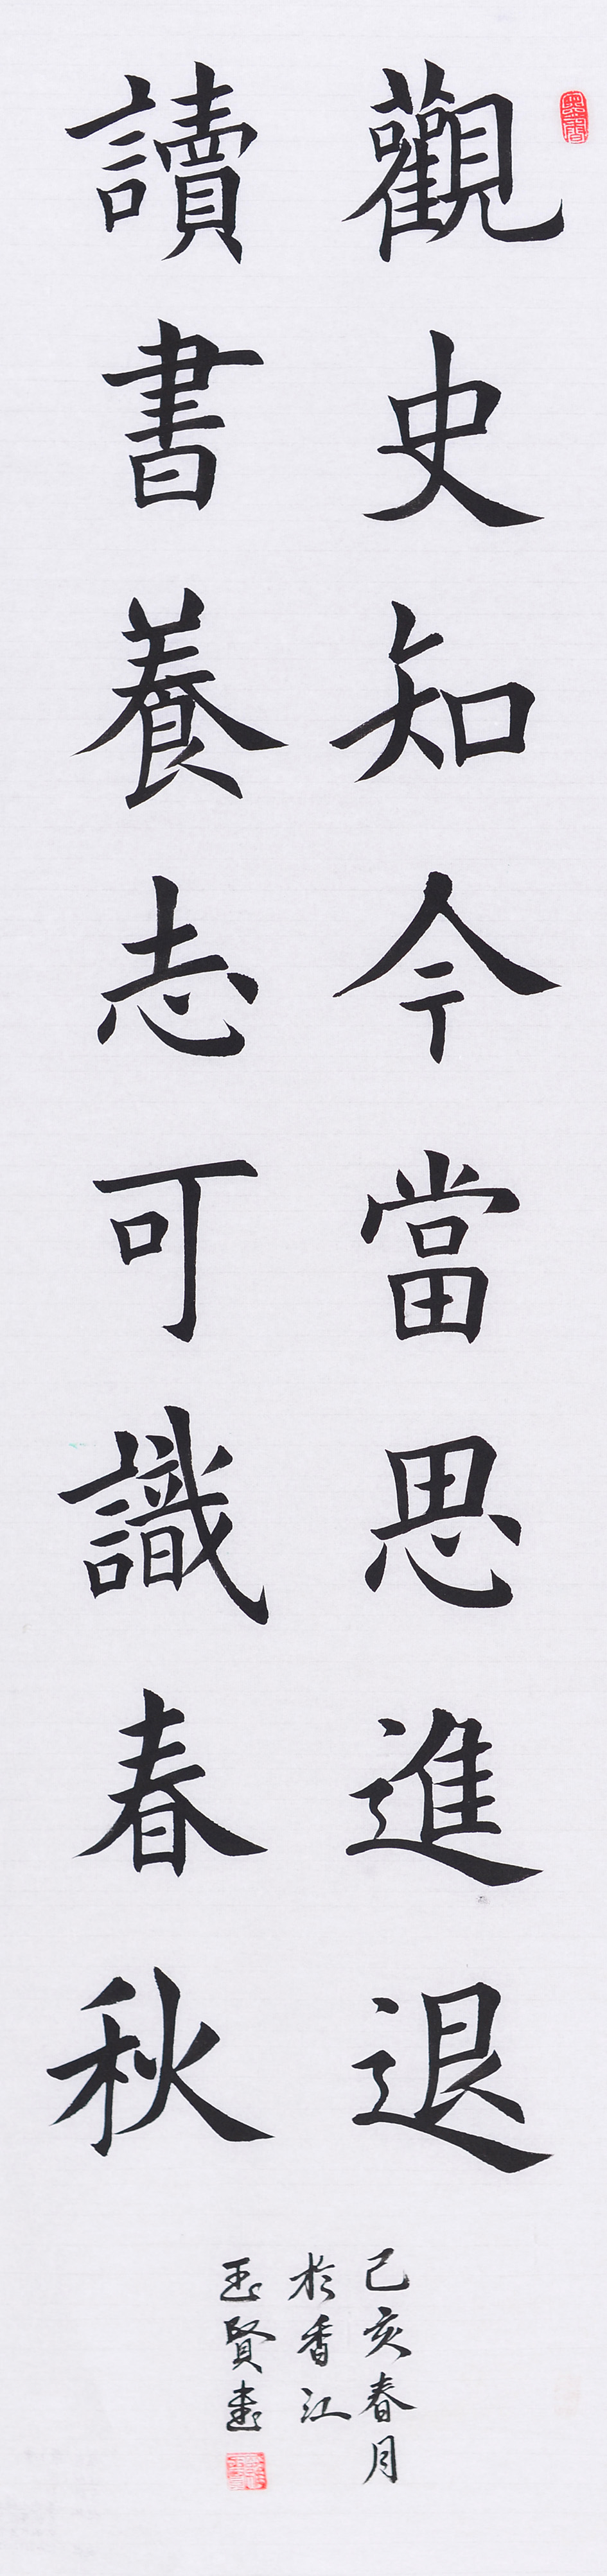 觀史知今當思進退
讀書養志可識春秋
己亥春月
於香江
玉賢書